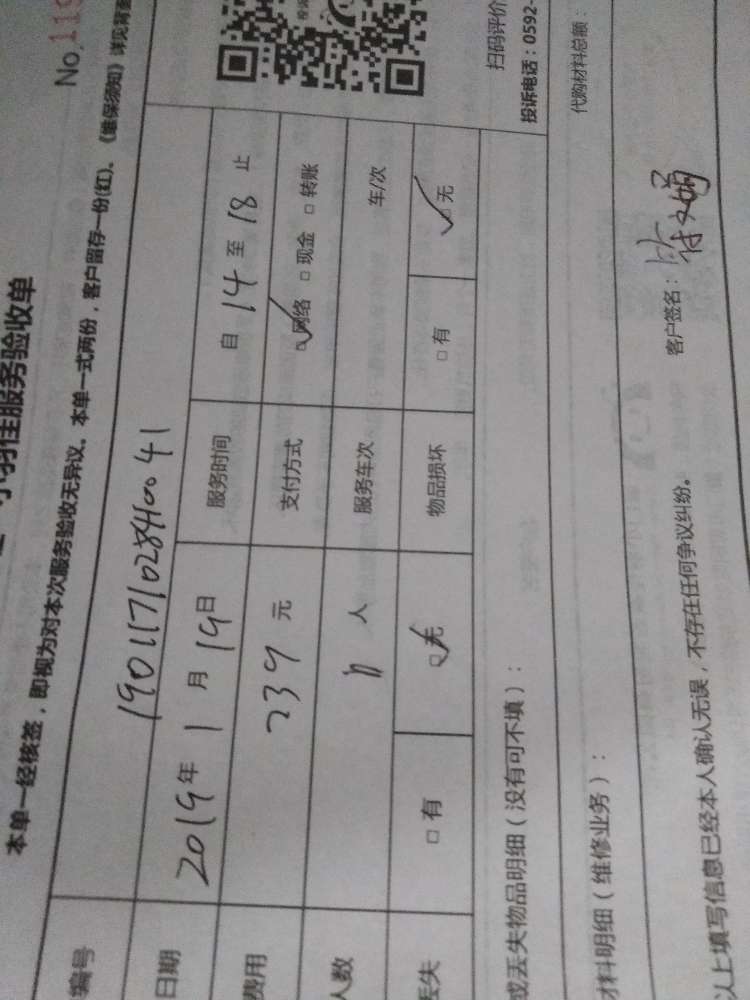 羽佳服务验收单
No. 119
本单一经核签，即视为对本次服务验收无异议。本单一式两份，客户留存一份(红)。《维保须知》详见背面
编号 190117102841004 1
日期 2019年 1 月 19日 服务时间 自 14 至 18 止
费用 239 元 支付方式 ☑网络 □现金 □转账
人数 人 服务车次 车/次
丢失 □有 ☑无 物品损坏 □有 ☑无
扫码评价
投诉电话：0592-
或丢失物品明细（没有可不填）：
材料明细（维修业务）：
代购材料总额：
以上填写信息已经本人确认无误，不存在任何争议纠纷。
客户签名：